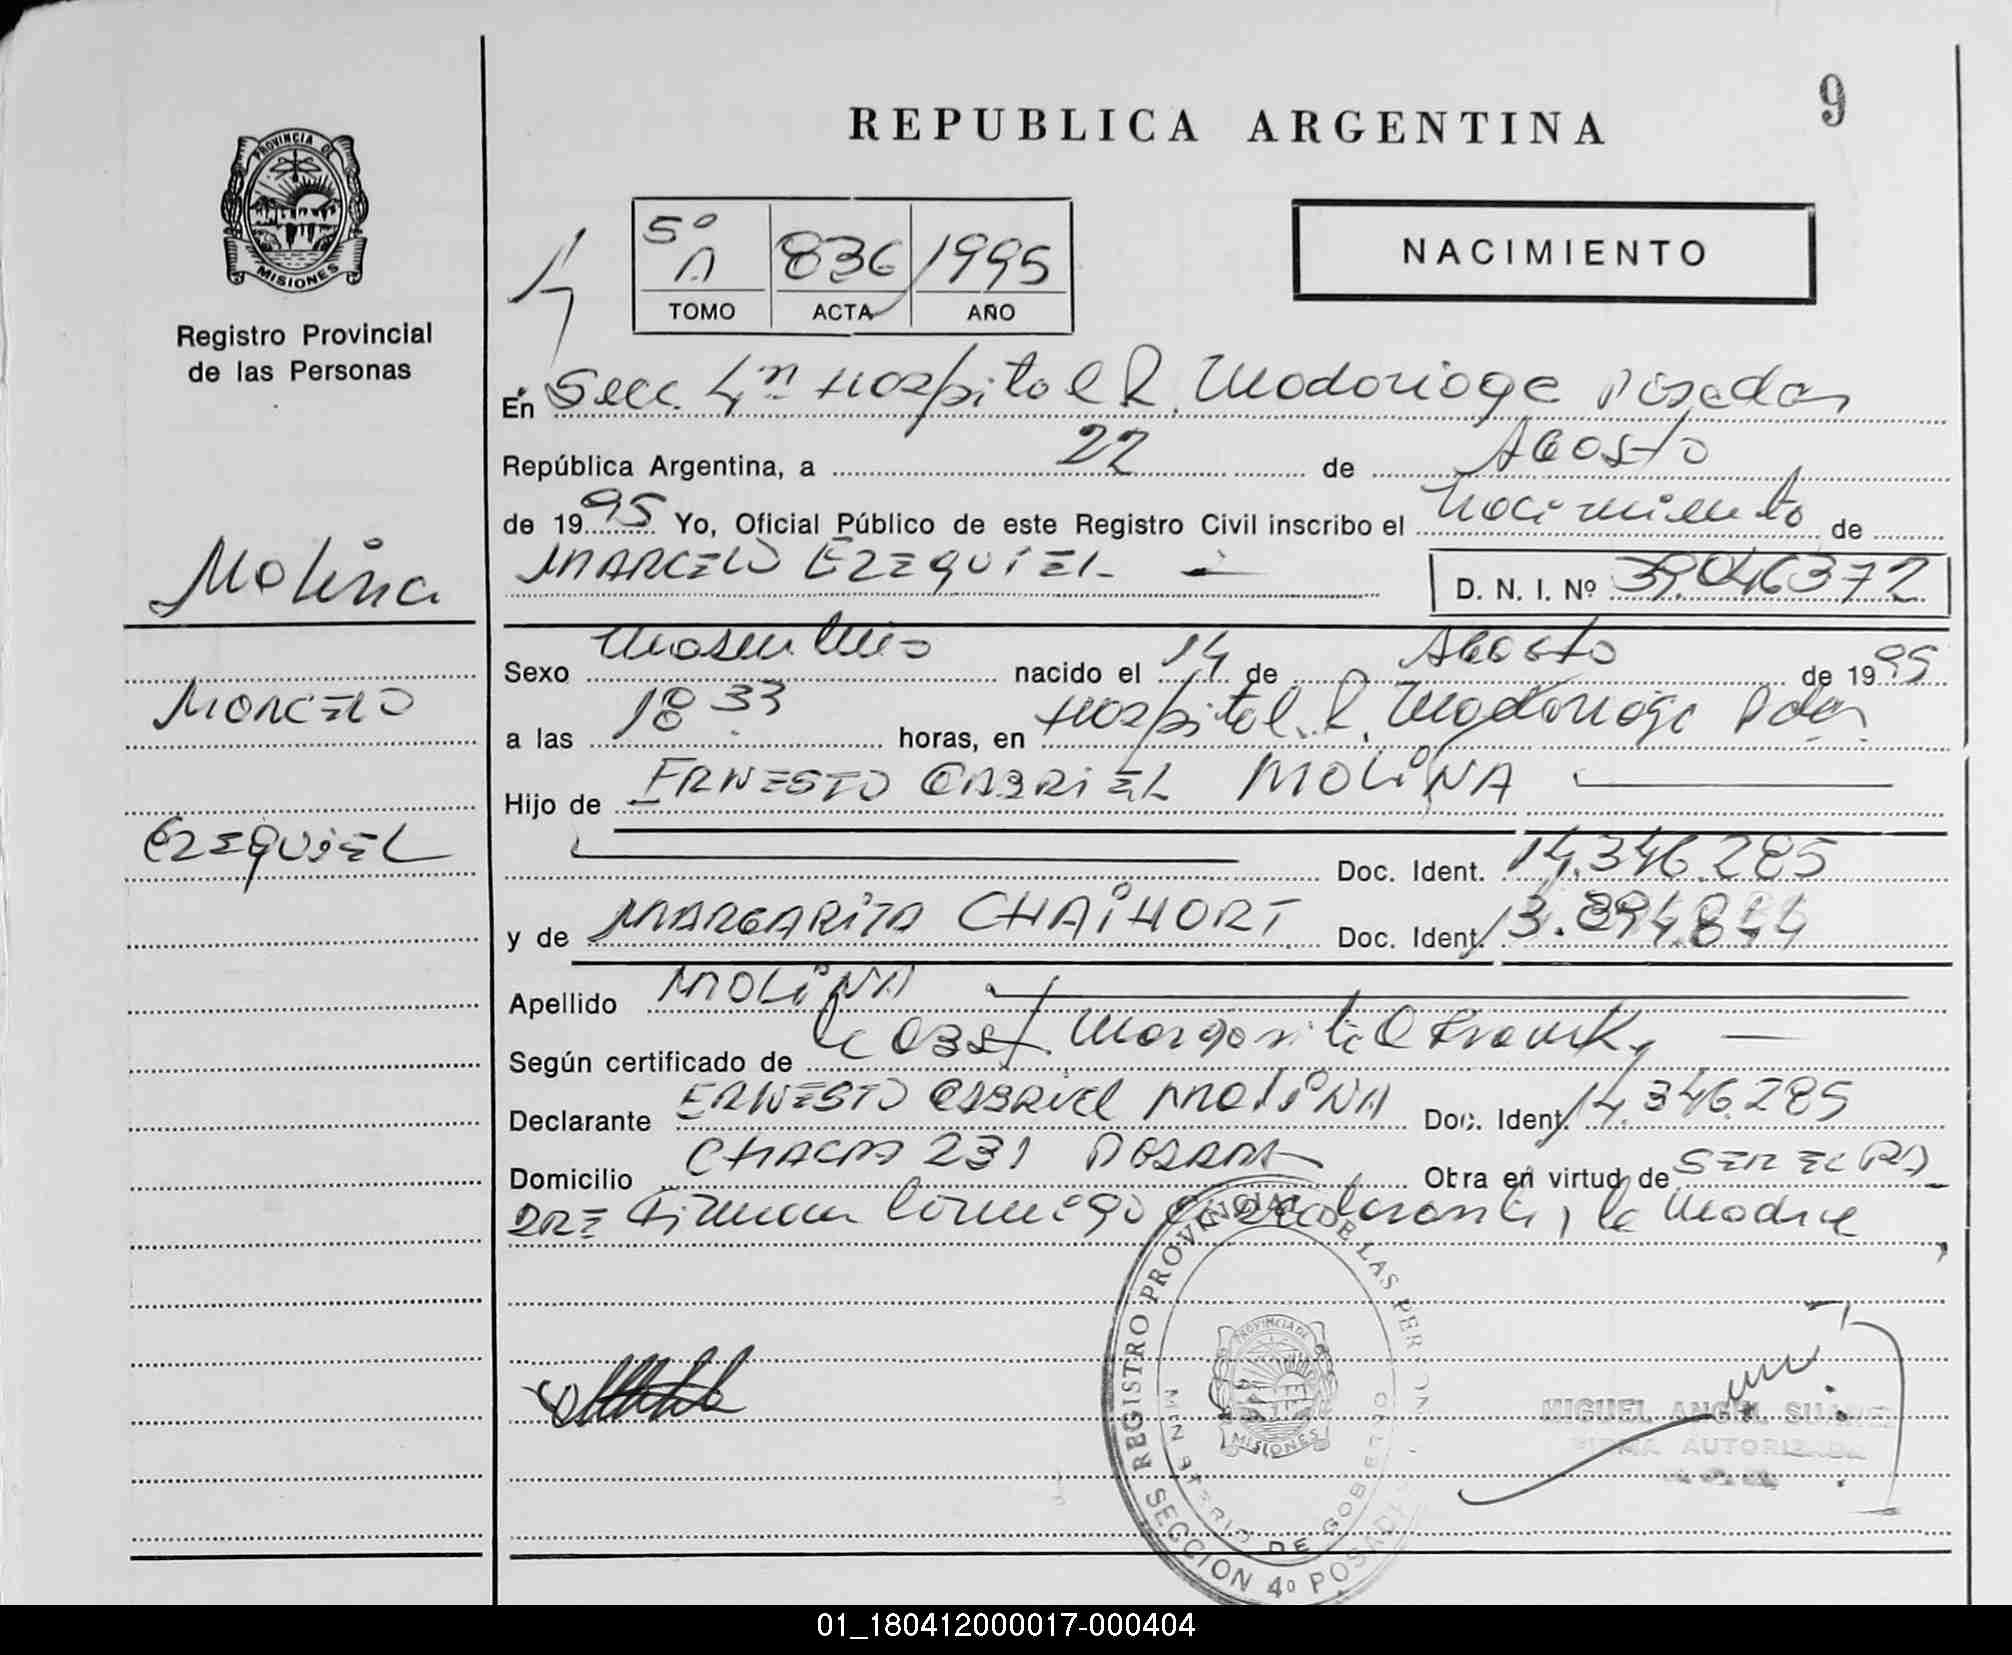 9
REPUBLICA ARGENTINA
PROVINCIA DE
MISIONES
Registro Provincial
de las Personas
5º A 836 1995
TOMO ACTA AÑO
NACIMIENTO
En Secc. 4ta Hospital R. Madariaga Posadas
República Argentina, a 22 de Agosto
de 1995 Yo, Oficial Público de este Registro Civil inscribo el nacimiento de
Molina
MARCELO EZEQUIEL
D. N. I. Nº 39.046372
Sexo Masculino nacido el 14 de Agosto de 1995
MARCELO
a las 18 33 horas, en Hospital R. Madariaga Pdas
Hijo de ERNESTO GABRIEL MOLINA
EZEQUIEL
Doc. Ident. 14.346.285
y de MARGARITA CHAIHORT Doc. Ident. 13.894.844
Apellido MOLINA
Según certificado de la Obst. Margarita
Declarante ERNESTO GABRIEL MOLINA Doc. Ident. 14.346.285
Domicilio CHACRA 231 POSADAS Obra en virtud de SER EL PA
DRE Firman conmigo el declarante y la Madre
REGISTRO PROVINCIAL DE LAS PERSONAS
PROVINCIA DE
MISIONES
MINISTERIO DE GOBIERNO
SECCION 4º POSADAS
MIGUEL ANGEL SUAREZ
FIRMA AUTORIZADA
01_180412000017-000404